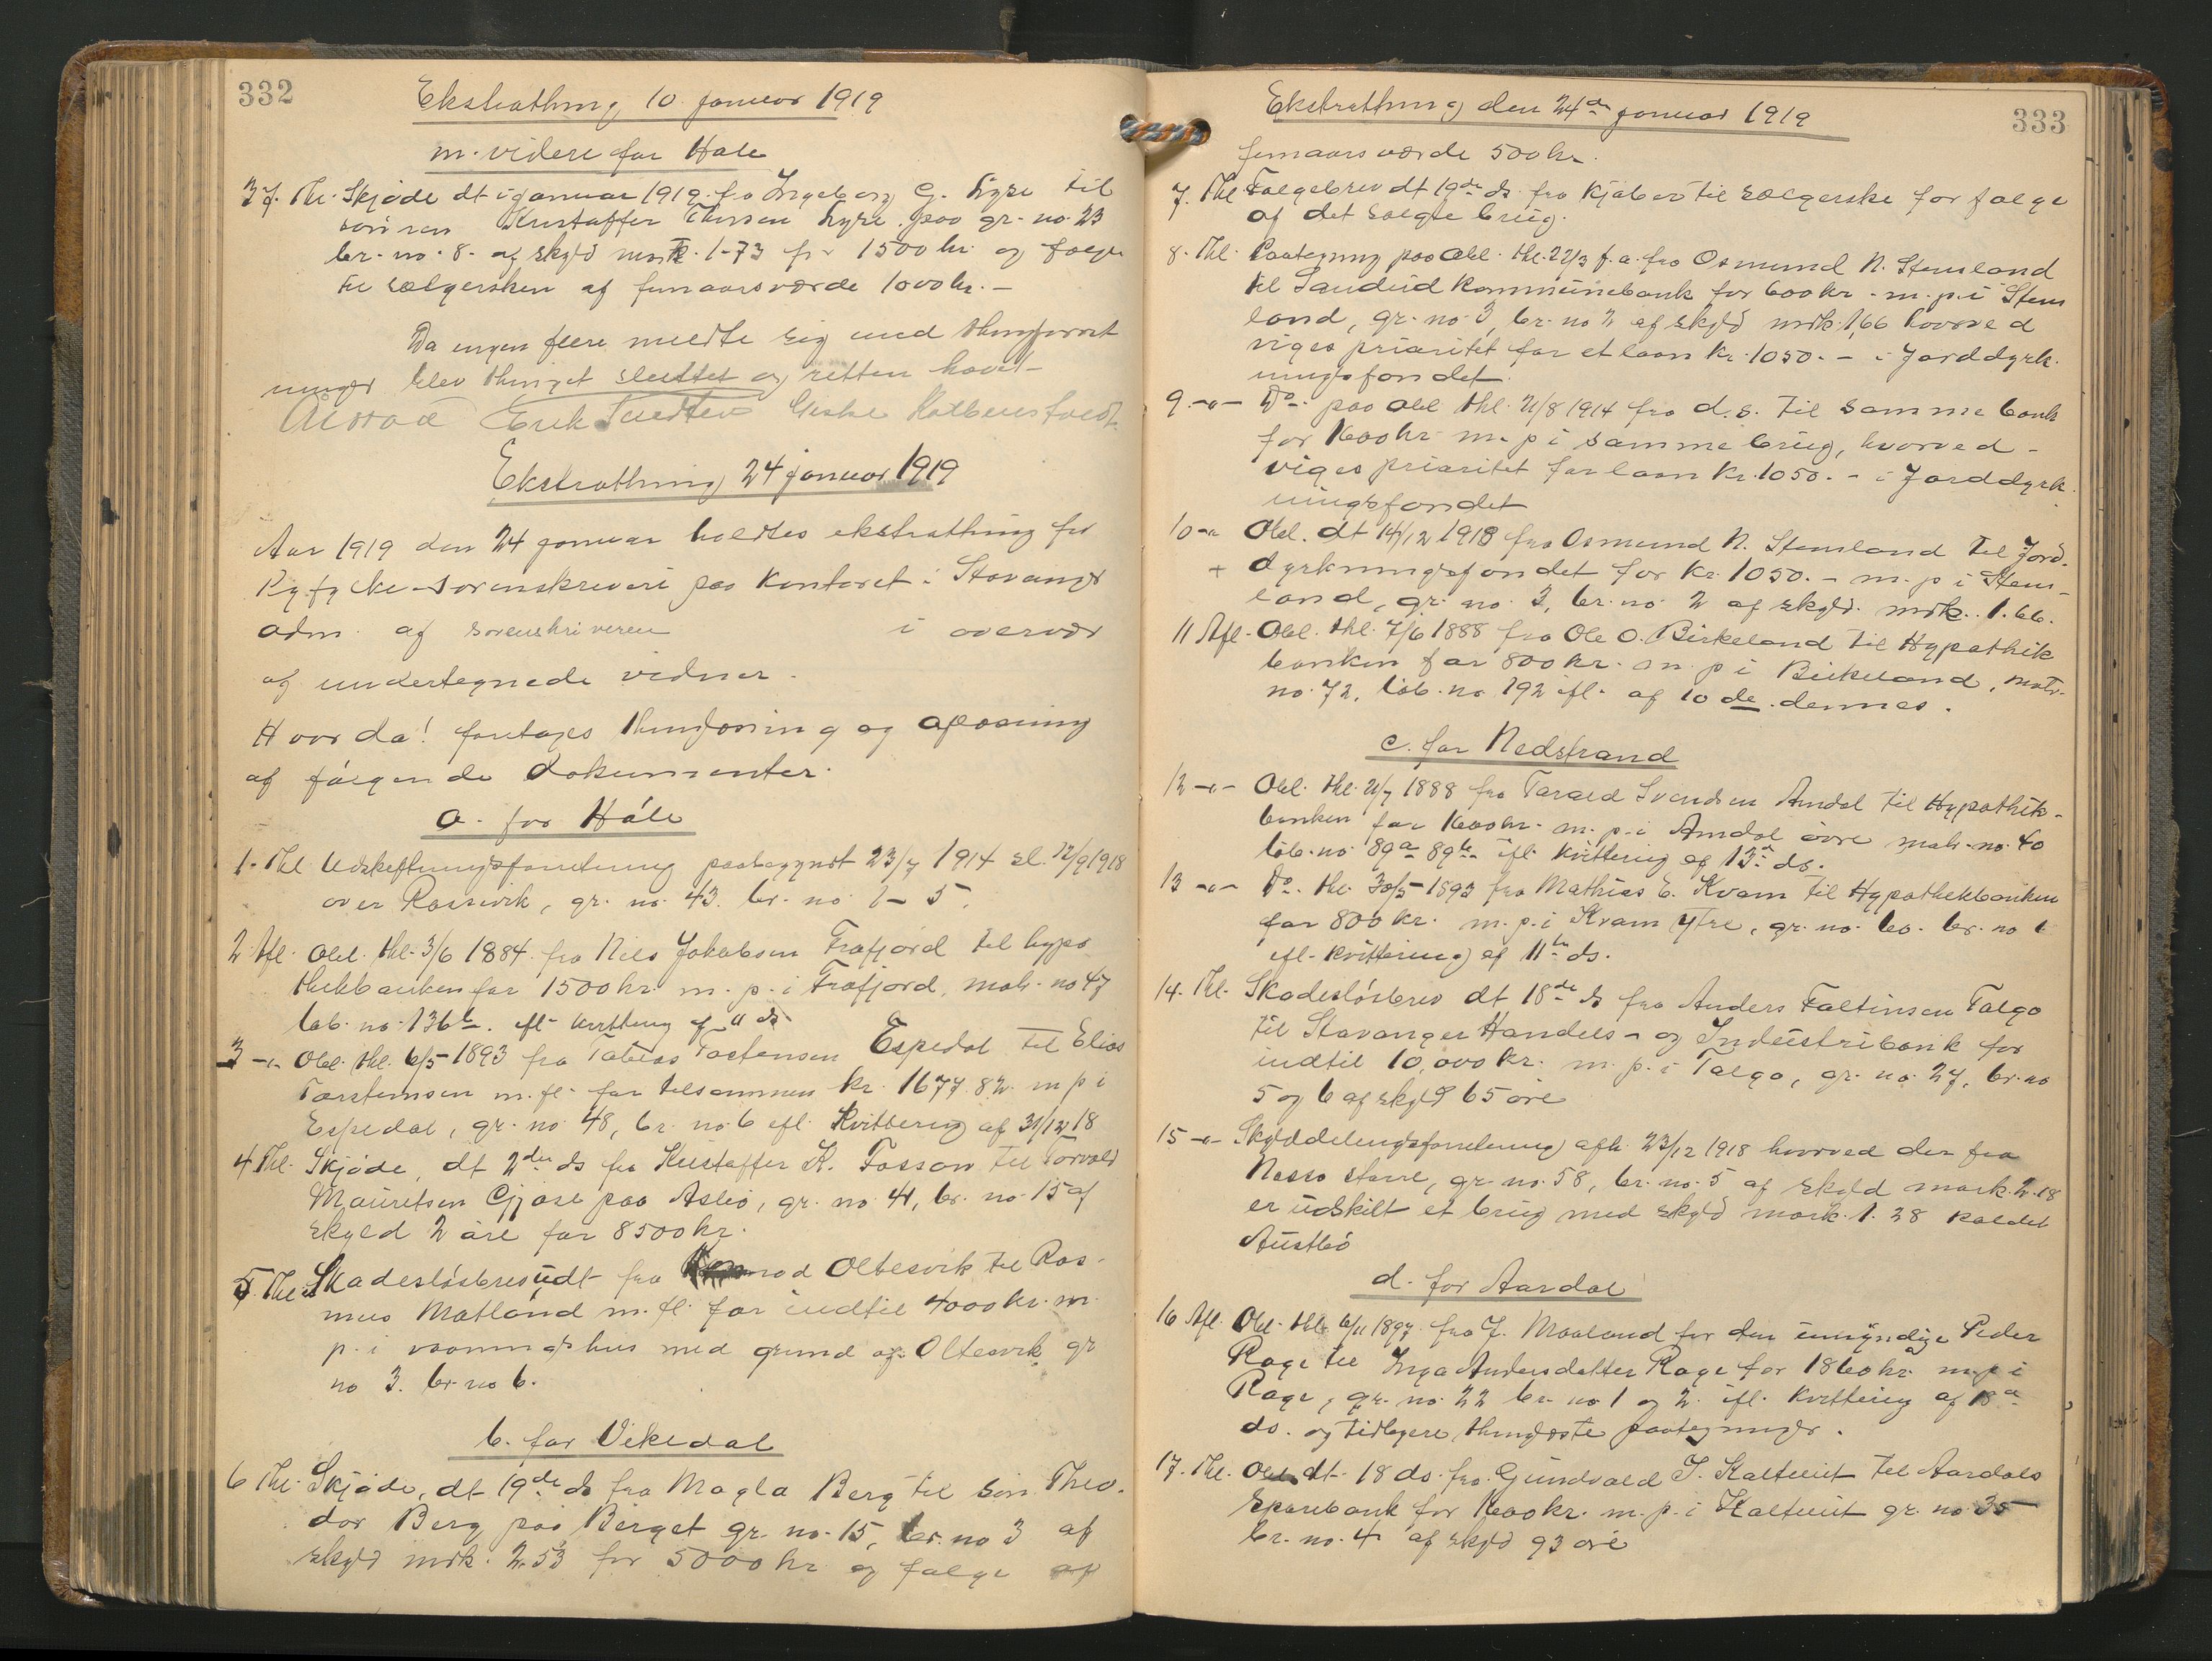 332
Ekstrathing 10 januar 1919
m. videre for Hole
37. Thl. Skjøde dt i januar 1919 fra Ingeborg G. Lyse til
sønnen Kristoffer Thorsen Lyse paa gr. no. 23
br. no. 8. af skyld mark. 1-73 for 1500 kr. og følge
til sælgersken af femaarsværde 1000 kr. –
Da ingen flere meldte sig med thinglæst
ninger blev thinget sluttet og retten hævet –
Erik
Ekstrathing 24 januar 1919
Aar 1919 den 24 januar holdtes ekstrathing for
Ryfylke sorenskriveri paa kontoret i Stavanger
adm. af sorenskriveren i overvær
af undertegnede vidner.
Hvor da! foretages thinglæsning og aflæsning
af følgende dokumenter.
a. for Høle
1. Thl Udskiftningsforretning paabegyndt 23/7 1914 sl. 12/9 1918
over Rossevik, gr. no. 43. br. no 1 – 5.
2 Afl. Obl. thl. 3/6 1884 fra Nils Jakobsen Frafjord til hypo
thekbanken for 1500 kr. m. p. i Frafjord, matr. no 47
løb. no. 136 b. ifl. kvittering af 11 ds
3 -"- Obl. thl. 6/5 1893 fra Tobias Tostensen Espedal til Elias
Torstensen m. fl. for tilsammen kr. 1677.82 m p i
Espedal, gr. no 48, br. no 6 ifl. Kvittering af 31/12 18
4 Thl. Skjøde, dt 2den ds fra Kristoffer K. Fossan til Torvald
Mauritsen Gjøse paa Asbø, gr. no 41, br. no. 15 af
skyld 2 øre for 8500 kr.
5. Thl Skadesløsbrev udt fra Oltesvik til Ras-
mus Matland m. fl. for indtil 4000 kr. m.
p. i vaaningshus med grund af Oltesvik gr
no 3. br. no 6.
b. for Vikedal
6 Thl. Skjøde, dt 19de ds fra Magla Berg til søn Theo.
dor Berg paa Berget gr. no. 15, br. no 3 af
skyld mrk. 2.53 for 5000 kr og følge af
333
Ekstrathing den 24de januar 1919
femaarsværde 500 kr.
7. Thl Følgebrev dt 19de ds. fra kjøber til sælgerske for følge
af det solgte brug.
8. Thl. Paategning paa Obl. thl. 22/3 f. a. fra Osmund N. Stensland
til Sandeid kommunebank for 600 kr. m. p. i Stens
land, gr. no. 3, br. no 2 af skyld mrk. 1,66 hvorved
viges prioritet for et laan kr. 1050. – i Jorddyrk.
ningsfondet.
9. -"- Do. paa Obl thl. 21/8 1914 fra d. s. til samme bank
for 1600 kr m. p i samme brug, hvorved –
viges prioritet for laan kr. 1050. – i Jorddyrk.
ningsfondet
10 -"- Obl. dt 14/12 1918 fra Osmund N. Stensland til Jord.
+ dyrkningsfondet for kr. 1050. – m. p i Stens-
land, gr. no. 3, br. no 2 af skyld. mrk. 1.66.
11 Afl. Obl. thl. 7/6 1888 fra Ole O. Birkeland til Hypothek
banken for 800 kr. m. p i Birkeland, matr.
no. 72, løb. no 192 ifl. af 10 de dennes.
c. for Nedstrand
12 -"- Obl. thl. 21/7 1888 fra Tarald Svendsen Amdal til Hypothek-
banken for 1600 kr. m. p. i Amdal øvre matr. no. 40
løb. no. 89a 89b ifl. kvittering af 13de ds.
13 -"- Do. thl. 30/5 1893 fra Mathias E. Kvam til Hypothekbanken
for 800 kr. m. p. i Kvam ytre, gr. no. 60. br. no 1
ifl. kvittering af 11te ds.
14. Thl. Skadesløsbrev dt 18de ds fra Anders Faltinsen Talgo
til Stavanger Handels- og Industribank for
indtil 10,000 kr. m. p. i Talgo, gr. no. 27, br. no
5 og 6 af skyld 65 øre
15 -"- Skylddelingsforretning afh. 23/12 1918 hvorved der fra
Nesse store, gr. no. 58, br. no. 5 af skyld mark. 2.18
er udskilt et brug med skyld mark. 1. 28 kaldet
Austbø
d. for Aardal
16 Afl. Obl. thl. 6/11 1897 fra J. Maaland for den umyndige Peder
Rage til Inga Andersdatter Rage for 1860 kr m p i
Rage, gr. no. 22 br. no 1 og 2. ifl. kvittering af 18de
ds. og tidligere thinglæste paategninger.
17. Thl. Obl. dt. 18 ds. fra Gundvald J. Kalltveit til Aardals
Sparebank for 1600 kr. m. p. i Kalltveit gr. no 35
br. no. 4 af skyld 93 øre